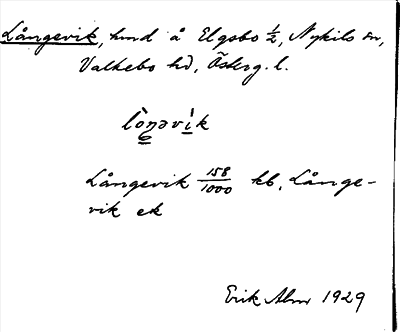 Långevik, hmd å Elgsbo 1/2, Nykils sn,
Valkebo hd, Österg. l.
lòŋəvìk
Långevik 158/1000 kb, Långe-
vik ek
Erik Alm 1929